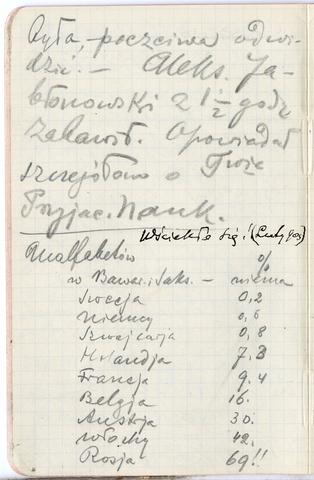 była, poczciwa odwi-
dzić. — Aleks. Ja-
błonowski 2 1/2 godz
zabawił. Opowiadał
szczegółowo o Tow.
Przyjac. Nauk.
Wściekło się! (Luty 903)
Analfabetów %
w Bawar. i Saks. — niema
Szwecja 0,2
Niemcy 0,6
Szwajcarja 0,8
Holandja 7.3
Francja 9.4
Belgja 16.
Austrja 30.
Włochy 42.
Rosja 69!!